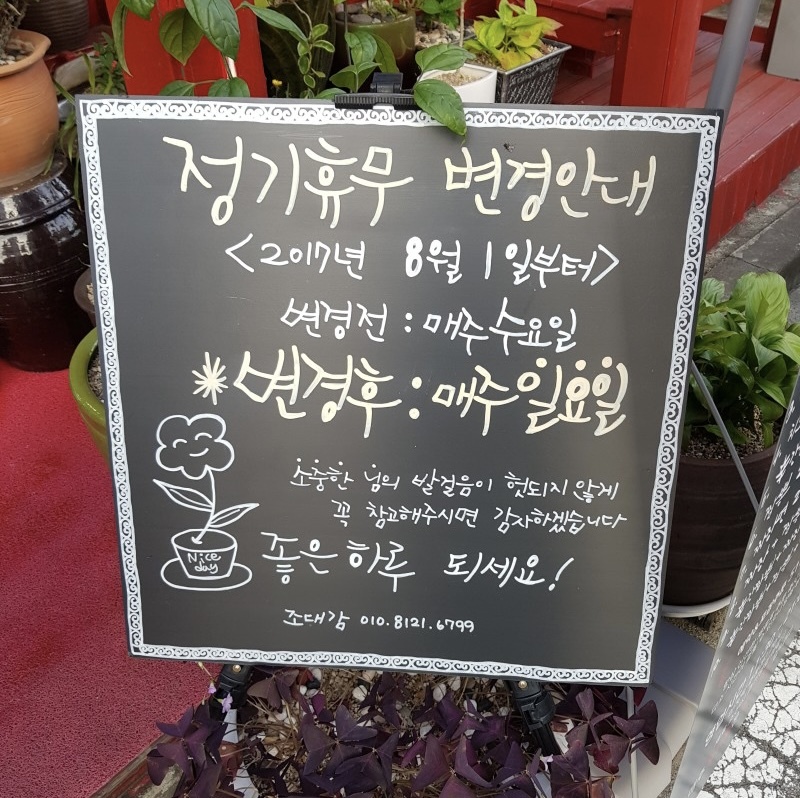 정기휴무 변경안내
<2017년 8월 1일부터>
변경전 : 매주 수요일
*변경후 : 매주 일요일
소중한 님의 발걸음이 헛되지 않게
꼭 참고해주시면 감사하겠습니다
좋은하루 되세요!
Nice
day
조대감 010.8121.6799